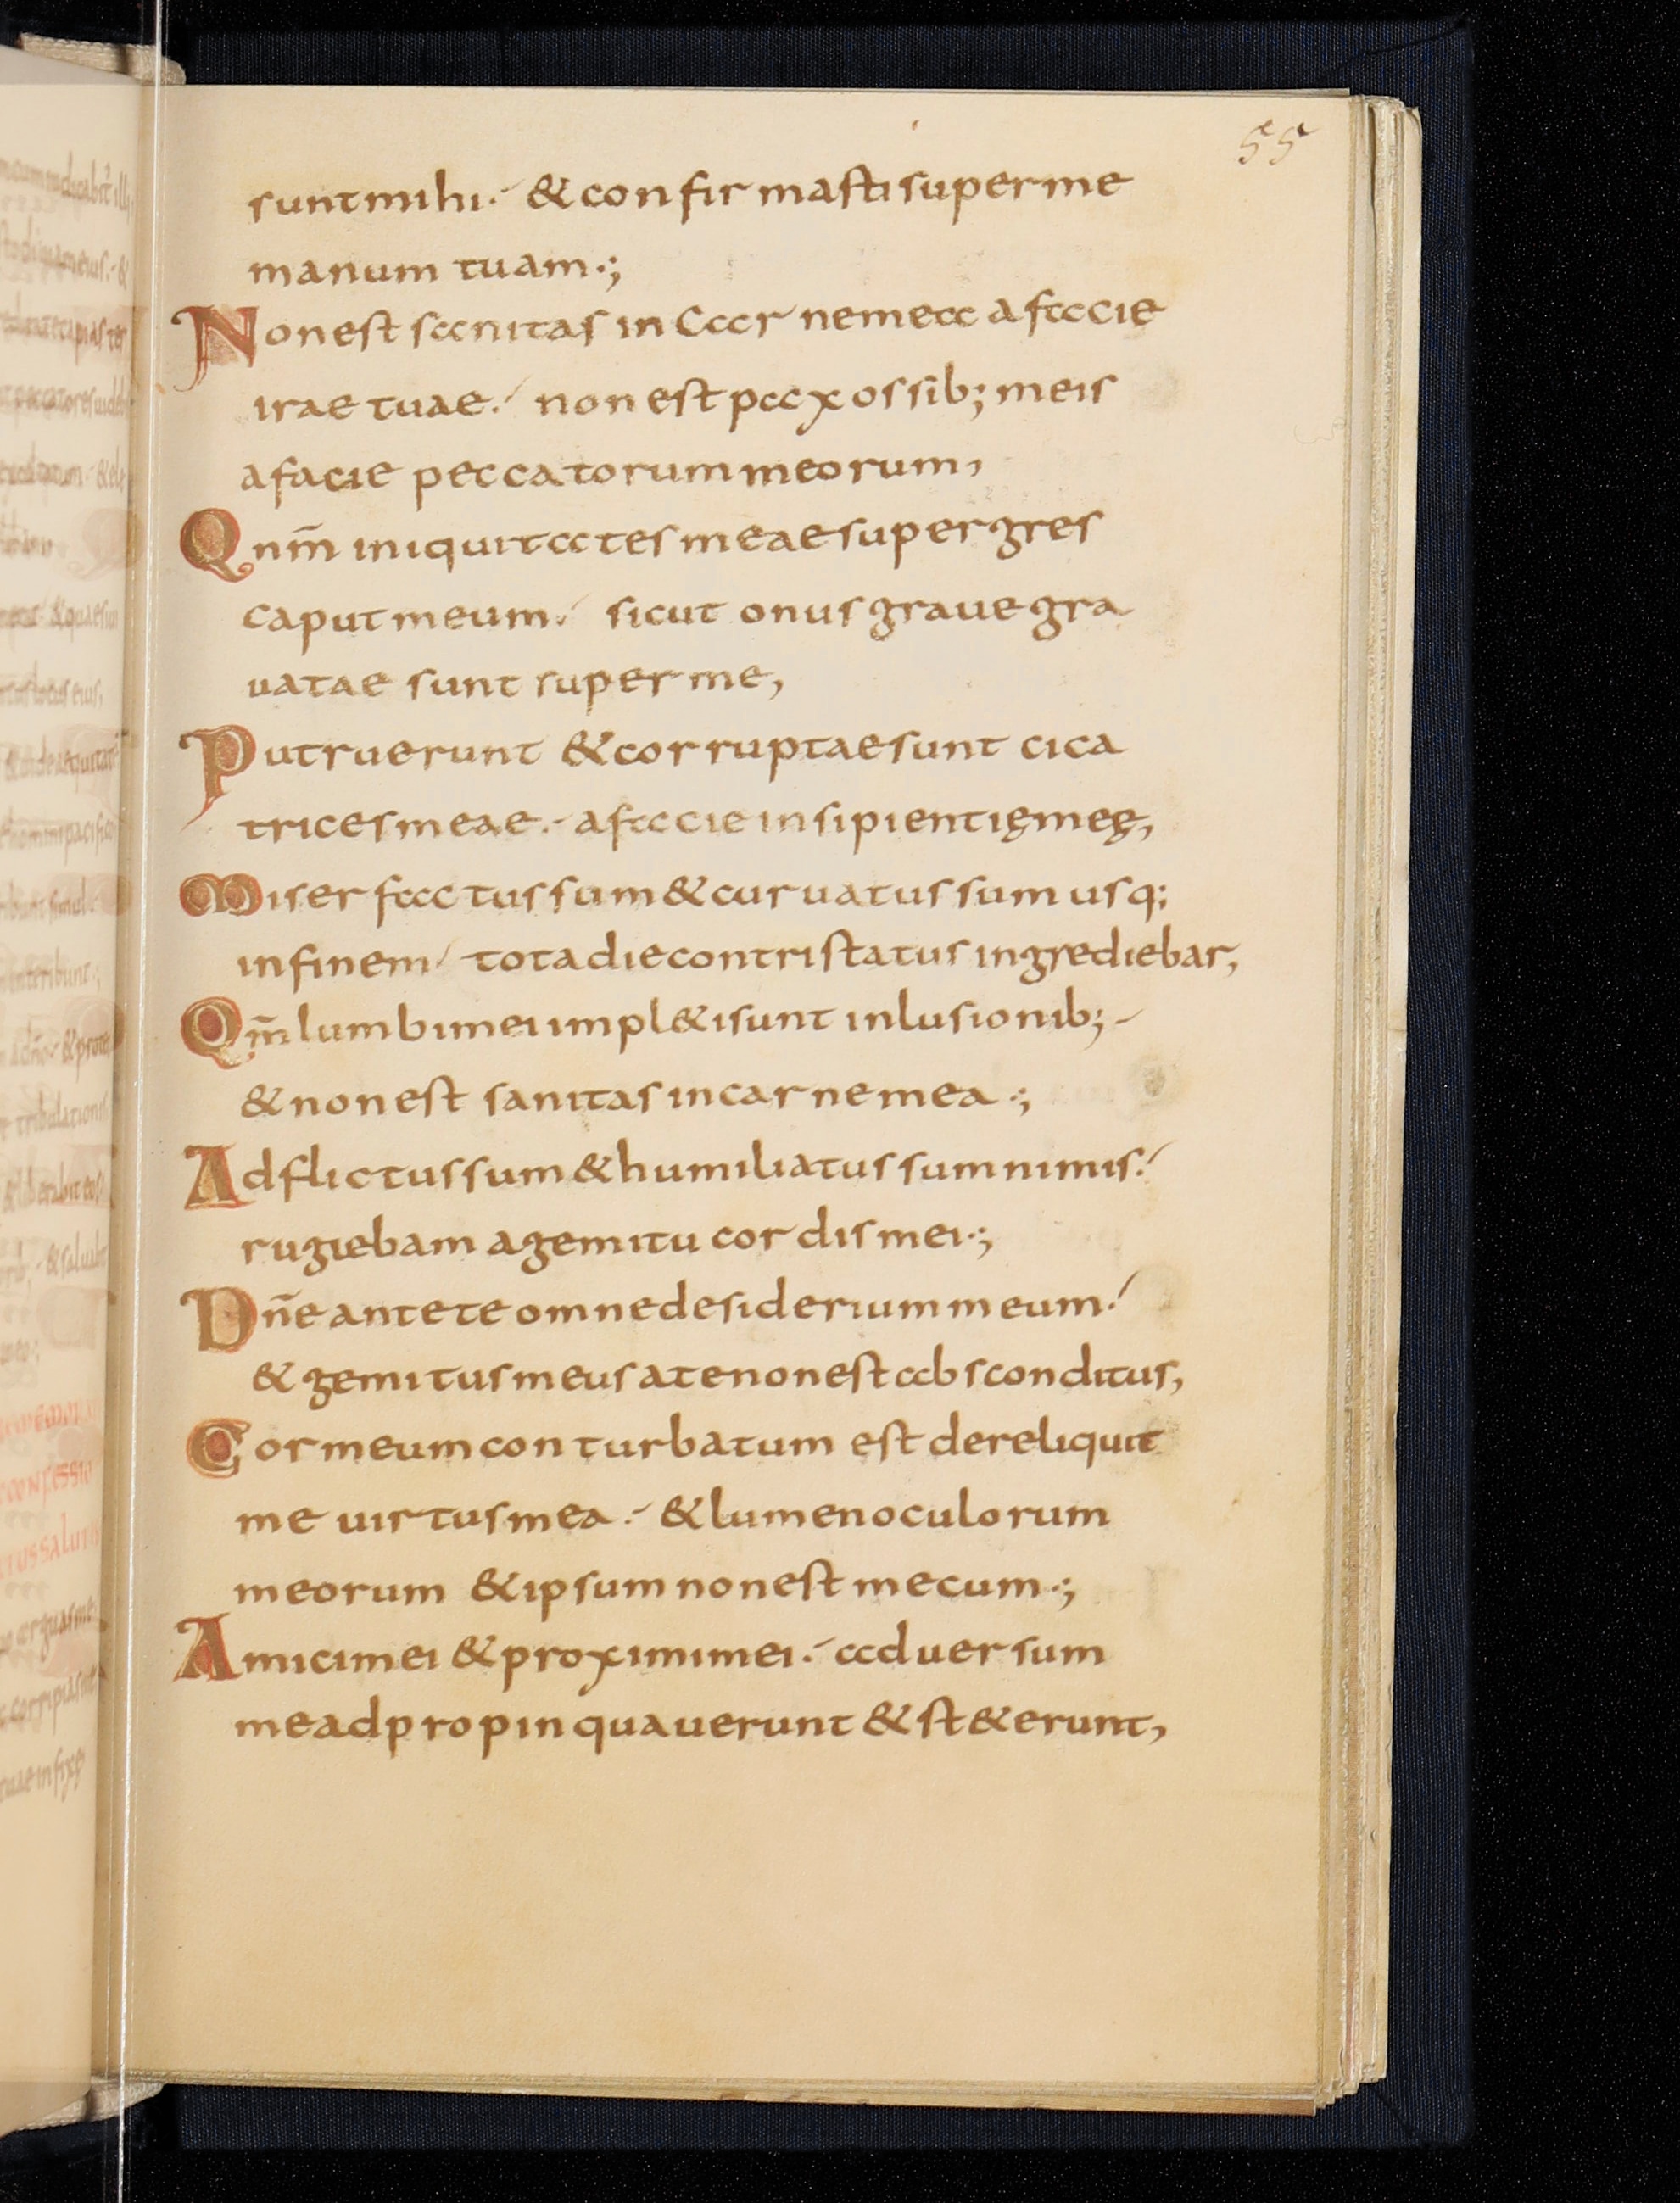 55
sunt mihi·⸍ & confirmasti super me
manum tuam·;
Non est sanitas in Carne mea a facie
irae tuae·⸍ non est pax ossib; meis
a facie peccatorum meorum,
Qnm̄ iniquitates meae supergres
caput meum·⸍ sicut onus graue gra
uatae sunt super me,
Putruerunt & corruptae sunt cica
trices meae·⸍ a facie insipientię meę,
Miser factus sum & curuatus sum usq;
in finem⸍ tota die contristatus ingrediebar,
Qm̄ lumbi mei impl&i sunt inlusionib;⸍
& non est sanitas in carne mea·;
Adflictus sum & humiliatus sum nimis·⸍
rugiebam a gemitu cordis mei·;
Dn̄e ante te omne desiderium meum·⸍
& gemitus meus a te non est absconditus,
Cor meum conturbatum est dereliquit
me uirtus mea·⸍ & lumen oculorum
meorum & ipsum non est mecum·;
Amici mei & proximi mei·⸍ aduersum
me adpropinquauerunt & st&erunt,